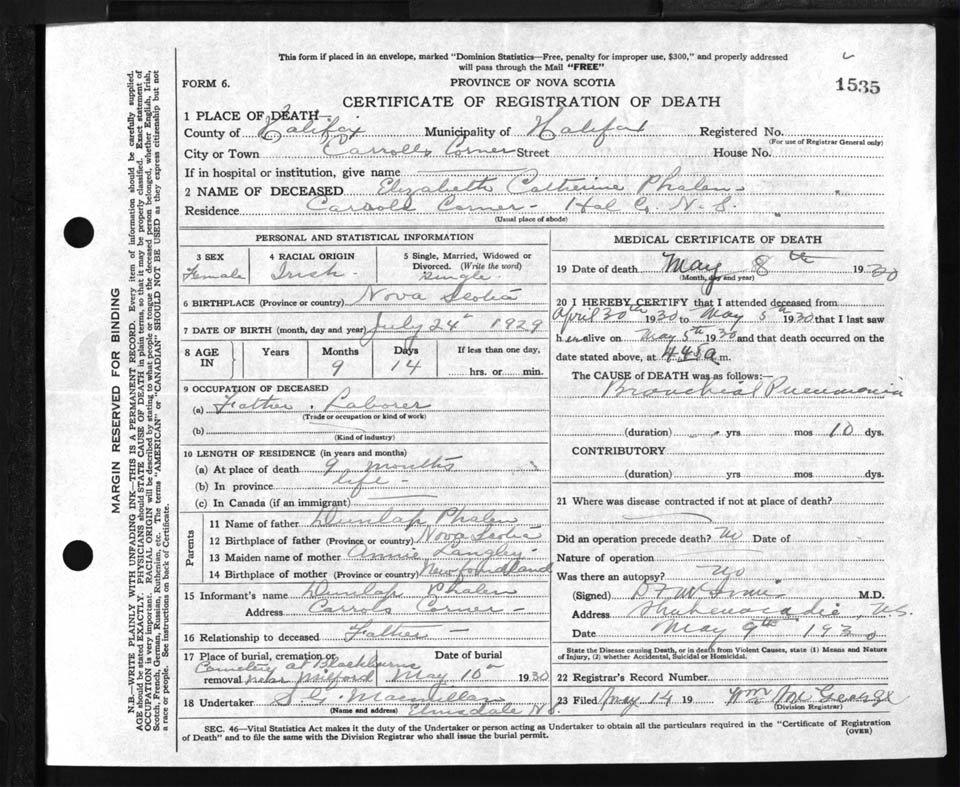 This form if placed in an envelope, marked "Dominion Statistics—Free, penalty for improper use, $300," and properly addressed
will pass through the Mail "FREE"
FORM 6.
PROVINCE OF NOVA SCOTIA
1535
CERTIFICATE OF REGISTRATION OF DEATH
1 PLACE OF DEATH—
County of Halifax Municipality of Halifax Registered No.
(For use of Registrar General only)
City or Town Carrolls Corner Street House No.
If in hospital or institution, give name
2 NAME OF DECEASED Elizabeth Catherine Phalen
Residence Carrols Corner - Hal Co. N. S.
(Usual place of abode)
PERSONAL AND STATISTICAL INFORMATION
3 SEX Female
4 RACIAL ORIGIN Irish
5 Single, Married, Widowed or
Divorced. (Write the word)
Single
6 BIRTHPLACE (Province or country) Nova Scotia
7 DATE OF BIRTH (month, day and year) July 24th 1929
8 AGE IN Years Months 9 Days 14 If less than one day,
hrs. or min.
9 OCCUPATION OF DECEASED
(a) Father. Laborer
(Trade or occupation or kind of work)
(b)
(Kind of industry)
10 LENGTH OF RESIDENCE (in years and months)
(a) At place of death 9 months
(b) In province life
(c) In Canada (if an immigrant)
Parents
11 Name of father Dunlap Phalen
12 Birthplace of father (Province or country) Nova Scotia
13 Maiden name of mother Annie Langley
14 Birthplace of mother (Province or country) Newfoundland
15 Informant's name Dunlap Phalen
Address Carrols Corner -
16 Relationship to deceased Father -
17 Place of burial, cremation or Date of burial
Cemetery at Blackburns
removal near Milford May 10th 1930
18 Undertaker S. G. Macmillan
(Name and address) Elmsdale N.S.
MEDICAL CERTIFICATE OF DEATH
19 Date of death May 8th 1930
(Month, day and year)
20 I HEREBY CERTIFY that I attended deceased from
April 30th 1930 to May 5th 1930 that I last saw
her alive on May 5th 1930 and that death occurred on the
date stated above, at 4.45a m.
The CAUSE OF DEATH was as follows:—
Bronchial Pneumonia
(duration) yrs mos 10 dys.
CONTRIBUTORY
(duration) yrs. mos dys.
21 Where was disease contracted if not at place of death?
Did an operation precede death? No Date of
Nature of operation
Was there an autopsy? No
(Signed) M.D.
Address Shubenacadie, N.S.
Date May 9th 1930
State the Disease causing Death, or in death from Violent Causes, state (1) Means and Nature
of Injury, (2) whether Accidental, Suicidal or Homicidal.
22 Registrar's Record Number
23 Filed May 14 19 Wm McGeorge
(Division Registrar)
SEC. 46—Vital Statistics Act makes it the duty of the Undertaker or person acting as Undertaker to obtain all the particulars required in the "Certificate of Registration
of Death" and to file the same with the Division Registrar who shall issue the burial permit.
(OVER)
MARGIN RESERVED FOR BINDING
N.B.—WRITE PLAINLY WITH UNFADING INK—THIS IS A PERMANENT RECORD. Every item of information should be carefully supplied.
AGE should be stated EXACTLY. PHYSICIANS should STATE CAUSE OF DEATH in plain terms, so that it may be properly classified. Exact statement of
OCCUPATION is very important. RACIAL ORIGIN will be described by stating to what people or tongue the deceased person belonged, whether English, Irish,
Scotch, French, German, Russian, Ruthenian, etc. The terms "AMERICAN" or "CANADIAN" SHOULD NOT BE USED as they express citizenship but not
a race or people. See instructions on back of Certificate.